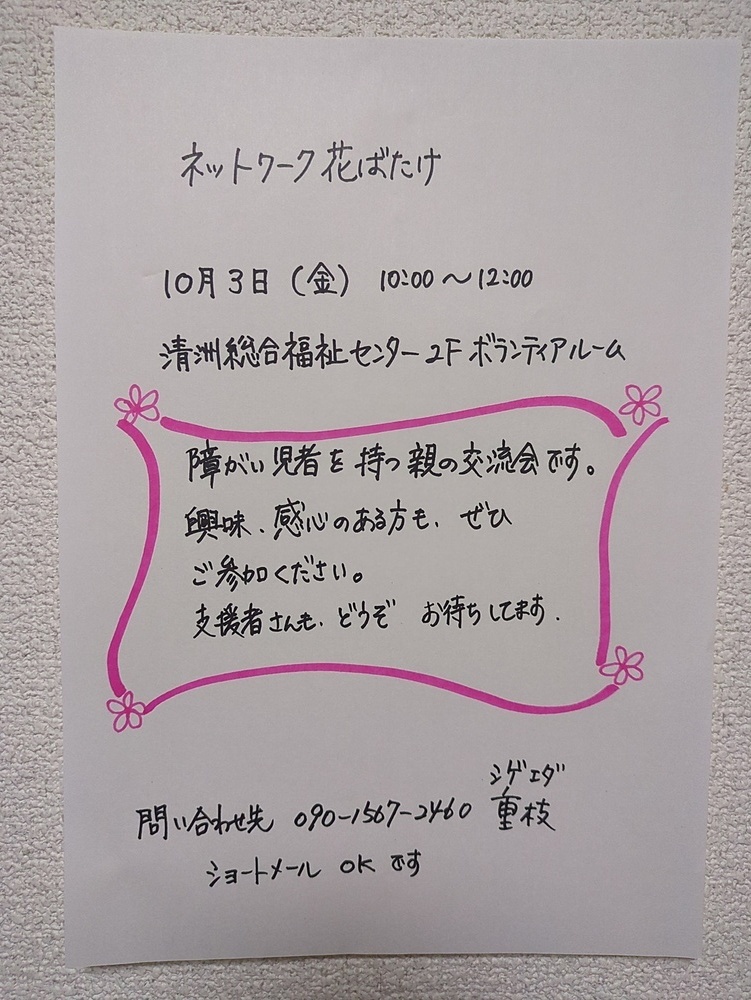 ネットワーク花ばたけ
10月3日（金） 10:00〜12:00
清洲総合福祉センター2F ボランティアルーム
障がい児者を持つ親の交流会です。
興味、感心のある方も、ぜひ
ご参加ください。
支援者さんも、どうぞ お待ちしてます.
シゲエダ
問い合わせ先 090-1567-2460 重枝
ショートメール OK です